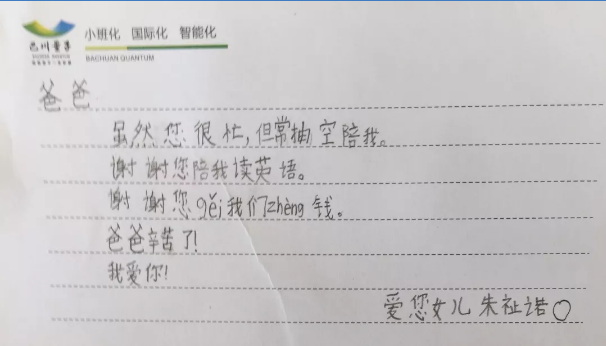 小班化 国际化 智能化
巴川量子
BACHUAN QUANTUM
爸爸
虽然您很忙,但常抽空陪我。
谢谢您陪我读英语。
谢谢您gěi我们zhèng钱。
爸爸辛苦了!
我爱你!
爱您女儿 朱祉诺